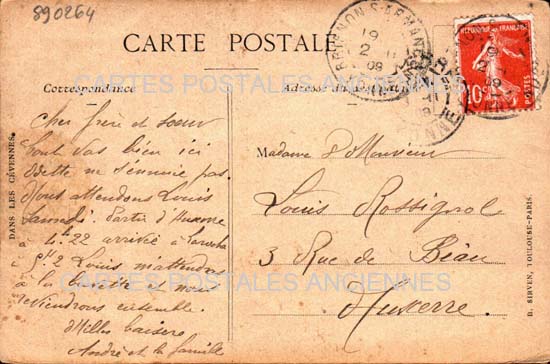 890264
CARTE POSTALE
CARTES POSTALES ANCIENNES
Correspondance
Adresse du
Cher frère et sœur
tout vas bien ici
Odette ne s'ennuie pas.
Nous attendons Louis
Samedi. Partir d'Auxerre
à 4h22 arrivée à
8h2 Louis m'attendra
à la et nous
viendrons ensemble.
Milles baisers
André et la famille
Madame & Monsieur
Louis Rossignol
3 Rue de Beau
Auxerre.
CARTES POSTALES ANCIENNES
DANS LES CÉVENNES.
D. SIRVEN, TOULOUSE-PARIS.
19
2
09
10c
POSTES